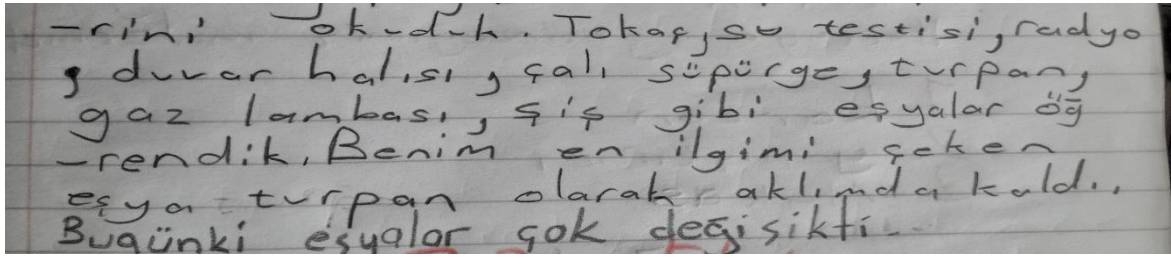 -rini okuduk. Tokaç, su testisi, radyo
, duvar halısı, çalı süpürge, turpan,
gaz lambası, şiş gibi eşyalar öğ
-rendik. Benim en ilgimi çeken
eşya turpan olarak aklımda kaldı.
Bugünki eşyalar çok değişikti.